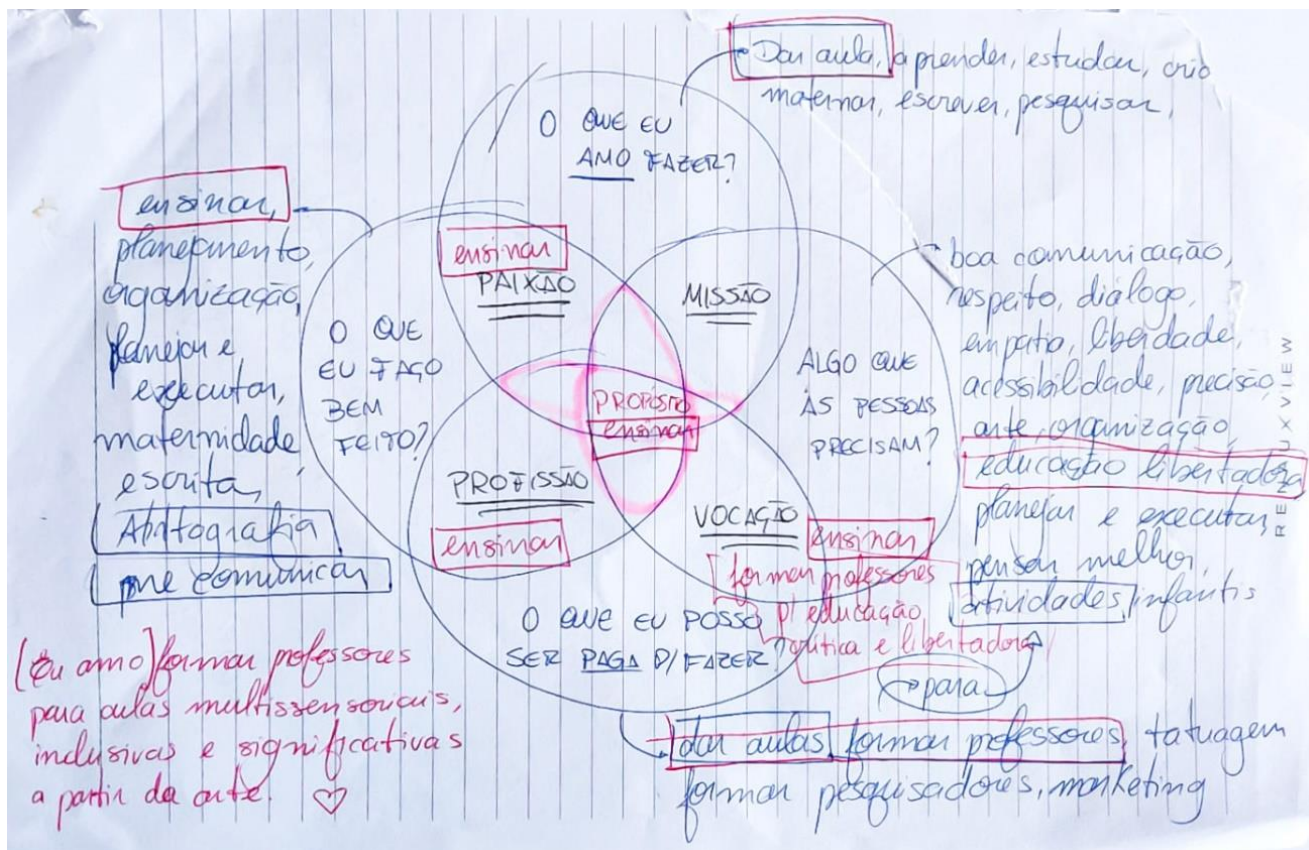 Dar aula, aprender, estudar, crio
maternar, escrever, pesquisar,
O QUE EU
AMO FAZER?
ensinar,
planejamento,
organização,
planejar e
executar,
maternidade,
escrita,
me comunicar
O QUE
EU FAÇO
BEM
FEITO?
ensinar
PAIXÃO
MISSÃO
PROPÓSITO
ensinar
PROFISSÃO
ensinar
ALGO QUE
ÀS PESSOAS
PRECISAM?
boa comunicação,
respeito, diálogo,
empatia, liberdade,
acessibilidade, precisão,
arte, organização,
educação libertadora
planejar e executar,
pensar melhor,
atividades infantis
VOCAÇÃO
ensinar
formar professores
p/ educação
política e libertadora
O QUE EU POSSO
SER PAGA P/ FAZER?
para
dar aulas, formar professores, tatuagem
formar pesquisadores, marketing
(Eu amo) formar professores
para aulas multissensoriais,
inclusivas e significativas
a partir da arte.
UXVIEW